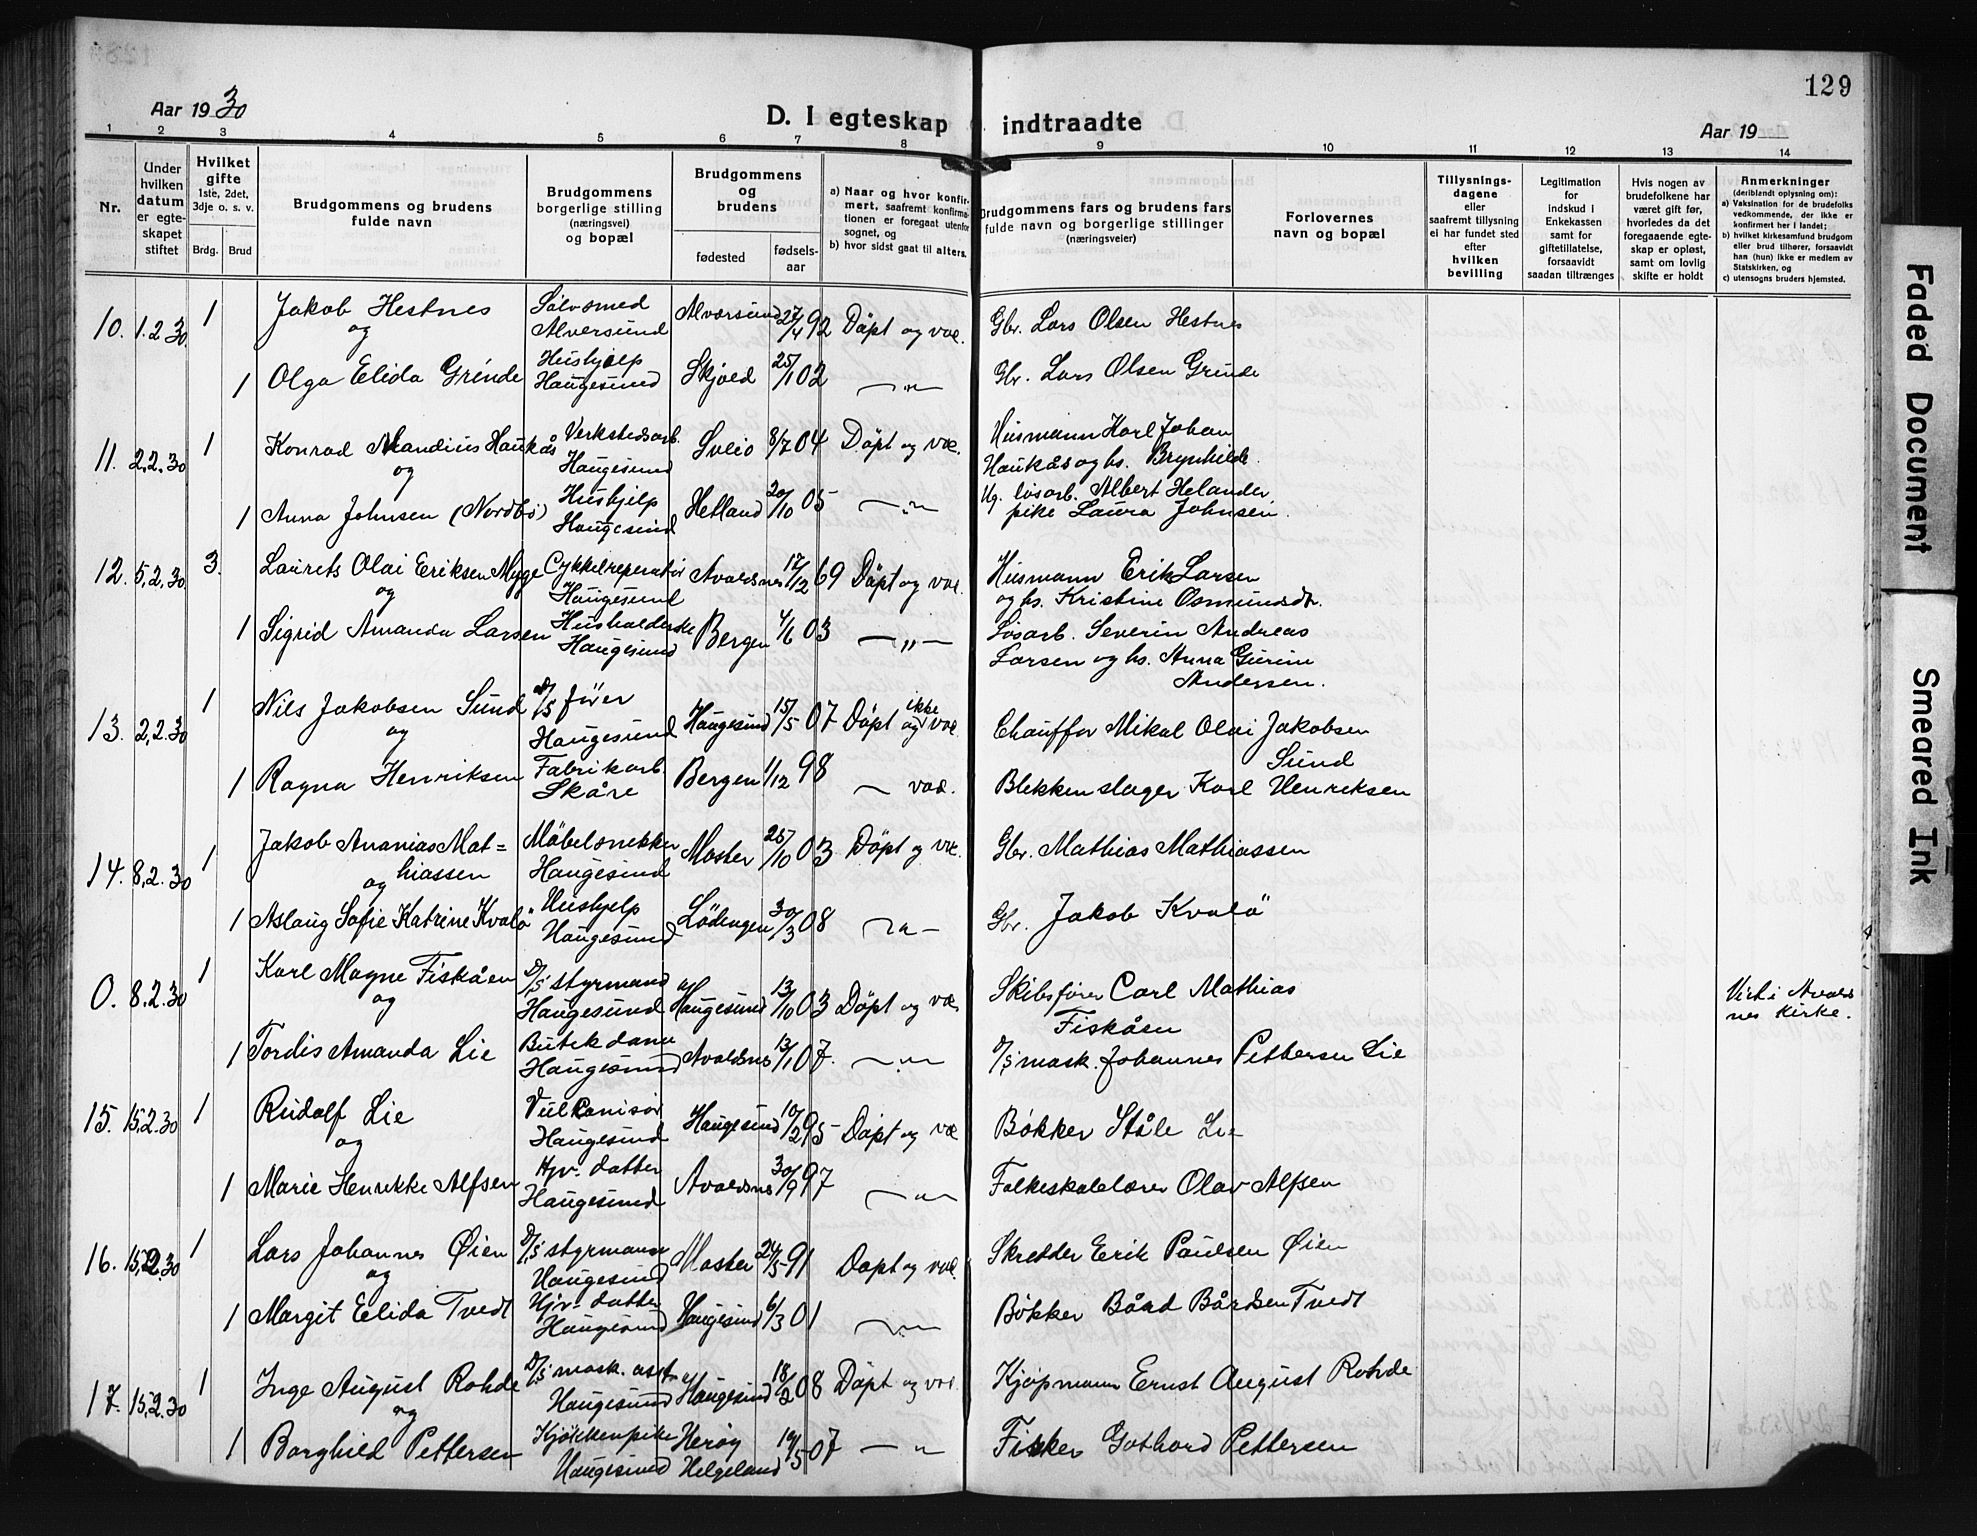 129
Aar 1930
D. I egteskap indtraadte
Aar 19
1 2 3 4 5 6 7 8 9 10 11 12 13 14
Nr.
Under hvilken datum er egteskapet stiftet
Hvilket gifte
1ste, 2det, 3dje o. s. v.
Brdg. Brud
Brudgommens og brudens fulde navn
Brudgommens borgerlige stilling (næringsvei) og bopæl
Brudgommens og brudens
fødested
fødselsaar
a) Naar og hvor konfirmert, saafremt konfirmationen er foregaat utenfor sognet, og
b) hvor sidst gaat til alters.
Brudgommens fars og brudens fars fulde navn og borgerlige stillinger (næringsveier)
Forlovernes navn og bopæl
Tillysningsdagene eller saafremt tillysning ei har fundet sted efter hvilken bevilling
Legitimation for indskud i Enkekassen samt for giftetillatelse, forsaavidt saadan tiltrænges
Hvis nogen av brudefolkene har været gift før, hvorledes da det foregaaende egteskap er opløst, samt om lovlig skifte er holdt
Anmerkninger
(deriblandt oplysning om):
a) Vaksination for de brudefolks vedkommende, der ikke er konfirmert her i landet;
b) hvilket kirkesamfund brudgom eller brud tilhører, forsaavidt han (hun) ikke er medlem av Statskirken, og
c) utensogns bruders hjemsted.
10. 1.2.30. 1 Jakob Hestnes Sølvsmed Alversund Alversund 27/4 92 Döpt og vac. Gbr. Lars Olsen Hestnes
og
1 Olga Elida Grinde Hushjelp Haugesund Skjold 25/1 02 —"— Gbr. Lars Olsen Grinde
11. 2.2.30 1 Konrad Mandius Haukås Verkstedsarb. Haugesund Sveio 8/7 04 Döpt og vac. Husmann Karl Johan Haukås og hs. Brynhilde
og
1 Anna Johnsen (Nordbø) Hushjelp Haugesund Hetland 20/10 05 —"— Ug. løsarb. Albert Helander, pike Laura Johnsen.
12. 5.2.30 3. Laurits Olai Eriksen Myge Cykkelreperatør Haugesund Avaldsnes 17/12 69 Döpt og vac. Husmann Erik Larsen og hs. Kristine Osmundsdtr.
og
1 Sigrid Amanda Larsen Husholderske Haugesund Bergen 4/6 03 —"— Løsarb. Severin Andreas Larsen og hs. Anna Gurine Andersen.
13. 2.2.30 1 Nils Jakobsen Sund D/S fører Haugesund Haugesund 15/5 07 Döpt og ikke vac. Chauffør Mikal Olai Jakobsen Sund
og
1 Ragna Henriksen Fabrikarb. Skåre Bergen 1/12 98 — vac. Blikkenslager Karl Henriksen
14. 8.2.30 1 Jakob Ananias Mathiassen Møbelsnekker Haugesund Moster 25/10 03 Döpt og vac. Gbr. Mathias Mathiassen
og
1 Aslaug Sofie Katrine Kvalö Hushjelp Haugesund Lödingen 30/3 08 —"— Gbr. Jakob Kvalö
0. 8.2.30 1 Karl Magne Fiskåen D/S styrmand Haugesund Haugesund 13/10 03 Döpt og vac. Skibsfører Carl Mathias Fiskåen Viet i Avaldsnes kirke.
og
1 Tordis Amanda Lie Butikdame Haugesund Avaldsnes 13/1 07 —"— D/S mask. Johannes Pettersen Lie
15. 15.2.30 1 Rudolf Lie Vulkanisør Haugesund Haugesund 10/2 95 Döpt og vac Bøkker Ståle Lie
og
1 Marie Henrikke Alfsen Hjv. datter Haugesund Avaldsnes 30/9 97 —"— Folkeskolelærer Olav Alfsen
16. 15.2.30 1 Lars Johannes Øien D/S styrmann Haugesund Moster 24/5 91 Döpt og vac. Skredder Erik Paulsen Øien
og
1 Margit Elida Tvedt Hjv. datter Haugesund Haugesund 6/3 01 —"— Bøkker Bård Bårdsen Tvedt
17. 15.2.30 1 Inge August Rohde D/S mask. asst. Haugesund Haugesund 18/2 08 Döpt og vac. Kjøpmann Ernst August Rohde
og
1 Borghild Pettersen Kjøkkenpike Haugesund Herøy Helgeland 19/5 07 —"— Fisker Gothard Pettersen
Faded Document
Smeared Ink